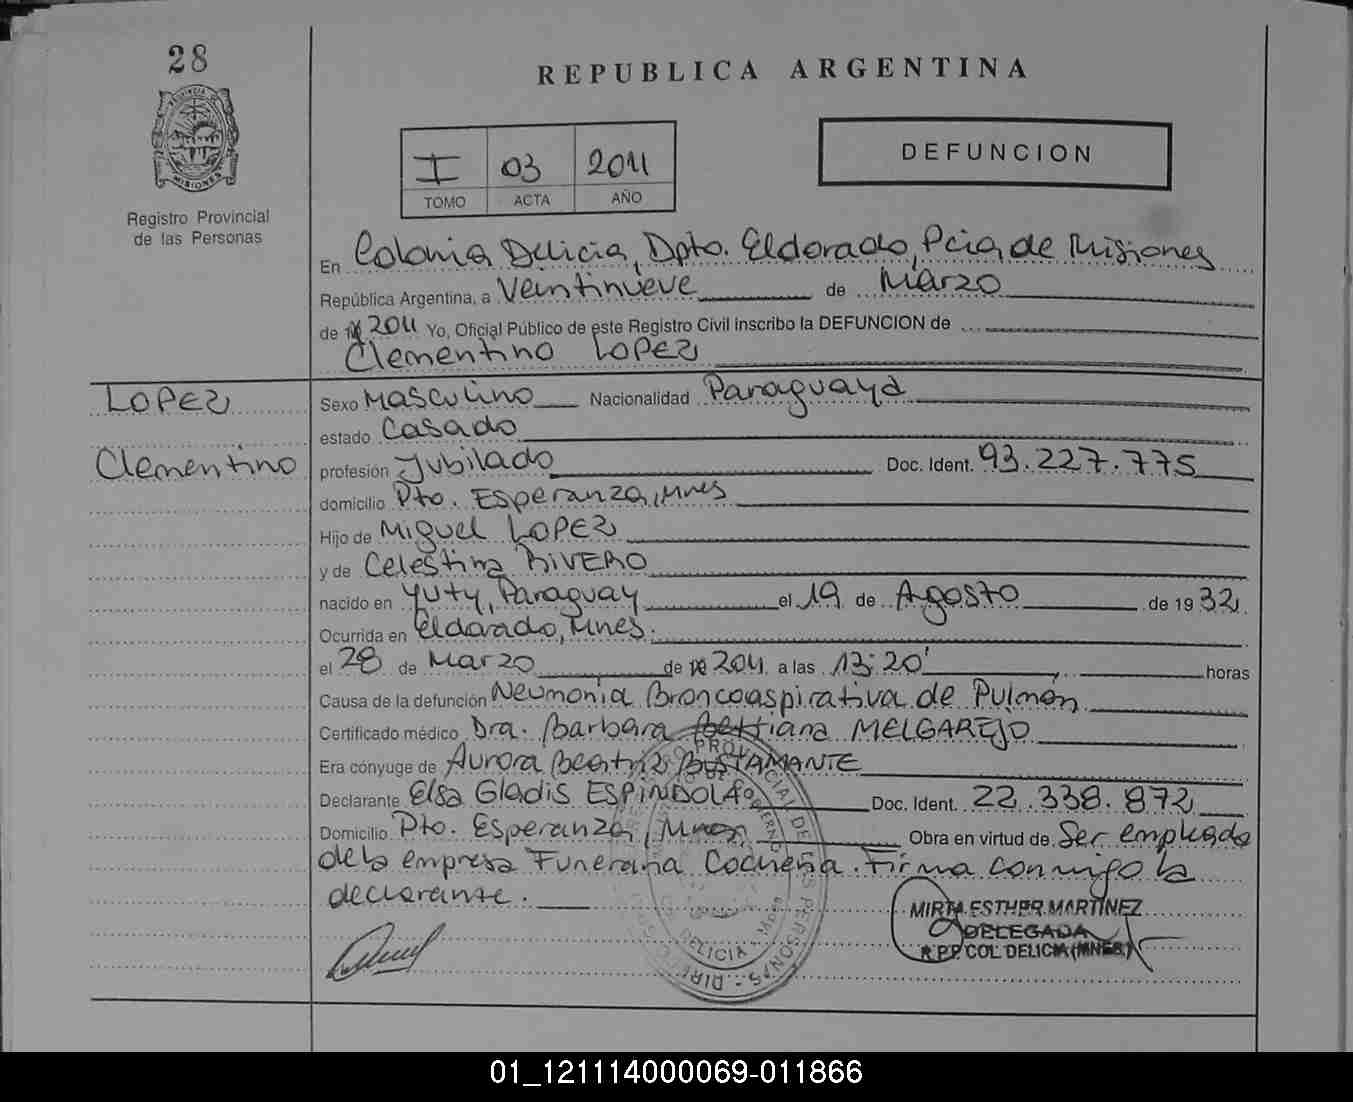 28
REPUBLICA ARGENTINA
MISIONES
Registro Provincial
de las Personas
I 03 2011
TOMO ACTA AÑO
DEFUNCION
En Colonia Delicia, Dpto. Eldorado, Pcia de Misiones
República Argentina, a Veintinueve de Marzo
de 2011 Yo, Oficial Público de este Registro Civil inscribo la DEFUNCION de
Clementino LOPEZ
LOPEZ
Clementino
Sexo Masculino Nacionalidad Paraguaya
estado Casado
profesión Jubilado Doc. Ident. 93.227.775
domicilio Pto. Esperanza, Mnes
Hijo de Miguel LOPEZ
y de Celestina RIVERO
nacido en Yuty, Paraguay el 19 de Agosto de 1932
Ocurrida en Eldorado, Mnes.
el 28 de Marzo de 2011 a las 13:20' horas
Causa de la defunción Neumonia Broncoaspirativa de Pulmon
Certificado médico Dra. Barbara Bettiana MELGAREJO
Era cónyuge de Aurora Beatriz BUSTAMANTE
Declarante Elsa Gladis ESPINDOLA Doc. Ident. 22.338.872
Domicilio Pto. Esperanza, Mnes, Obra en virtud de Ser empleada
de la empresa Funeraria Cocheria. Firma conmigo la
declarante.
MIRTA ESTHER MARTINEZ
DELEGADA
R.P.P. COL. DELICIA (MNES.)
01_121114000069-011866